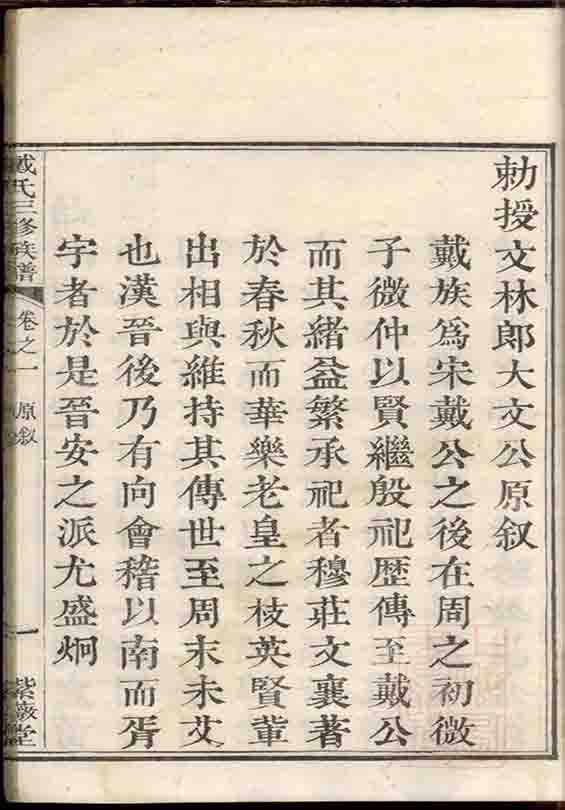 勅授文林郎大文公原叙
戴族為宋戴公之後在周之初微
子微仲以賢繼殷祀歷傳至戴公
而其緒益繁承祀者穆莊文襄著
於春秋而華樂老皇之枝英賢輩
出相與維持其傳世至周末未艾
也漢晉後乃有向會稽以南而胥
宇者於是晉安之派尤盛炯
戴氏三修族譜
卷之一
原叙
一
紫薇堂